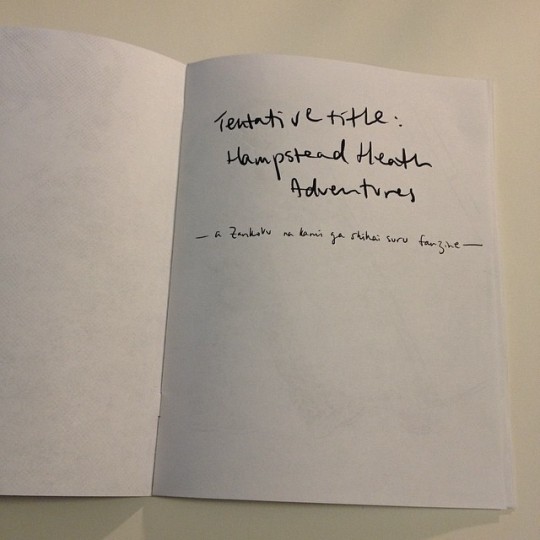 Tentative title:
Hampstead Heath
Adventures
— a Zankoku na kami ga shihai suru fanzine —